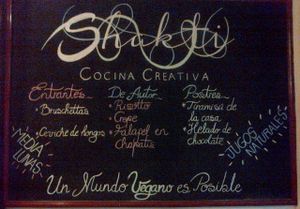 Shakti
COCINA CREATIVA
Entrantes
• Bruschettas
• Ceviche de hongos
De Autor
• Risotto
• Crepe
• Falafel en
chapatis
Postres
• Tiramisa de
la casa
• Helado de
chocolate
MEDIA
LUNAS
JUGOS
NATURALES
Un Mundo Vegano es Posible